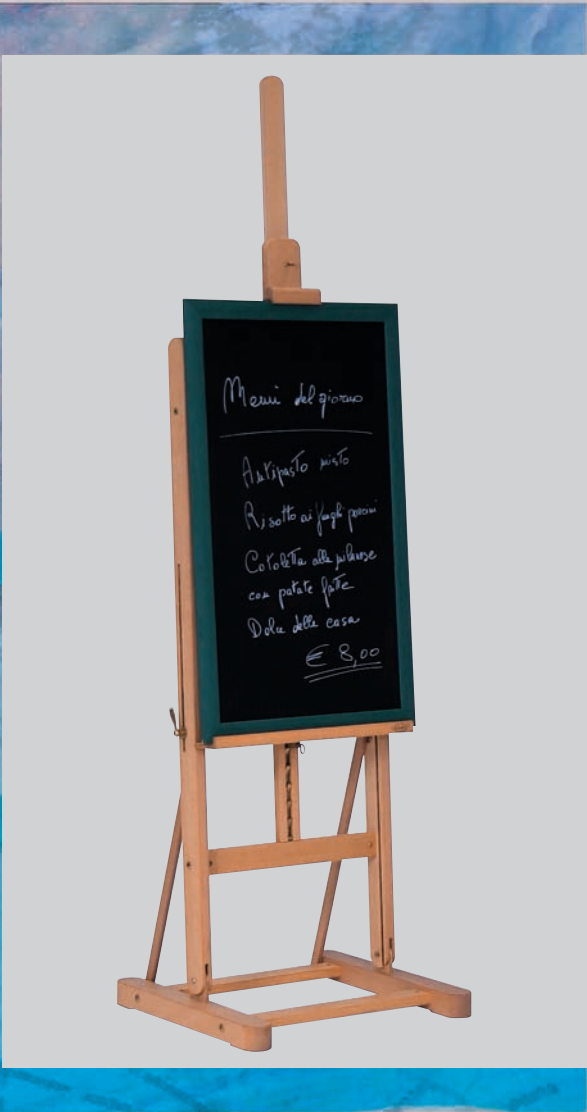 Menù del giorno
Antipasto misto
Risotto ai funghi porcini
Cotoletta alla milanese
con patate fritte
Dolce della casa
€ 8,00